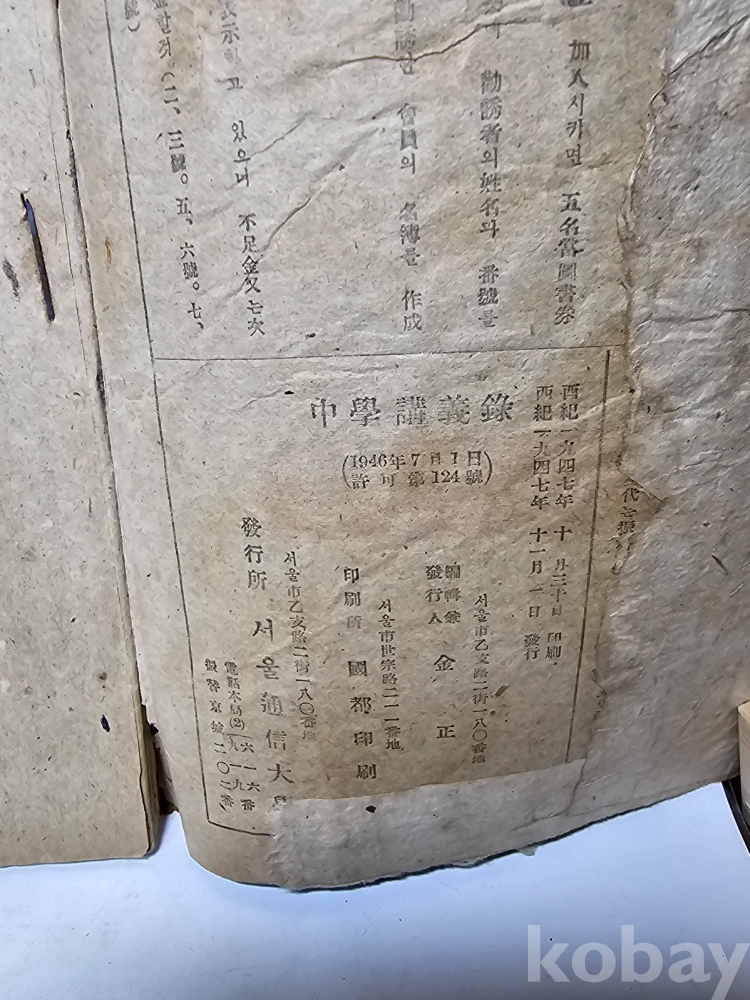 加入시키면 五名當圖書券
勸誘者의 姓名과 番號를
會員의 名簿를 作成
表示하고 있으니 不足金又는 次
(二、三號。五、六號。七、
號)
西紀一九四七年 十月三十日 印刷
西紀一九四七年 十一月一日 發行
中學講義錄
(1946年7月1日
許可第124號)
서울市乙支路二街一八〇番地
編輯兼
發行人 金正
서울市世宗路二一一番地
印刷所 國都印刷
서울市乙支路二街一八〇番地
發行所 서울通信大
電話本局(2)六一六番
振替京城二〇二番
kobay